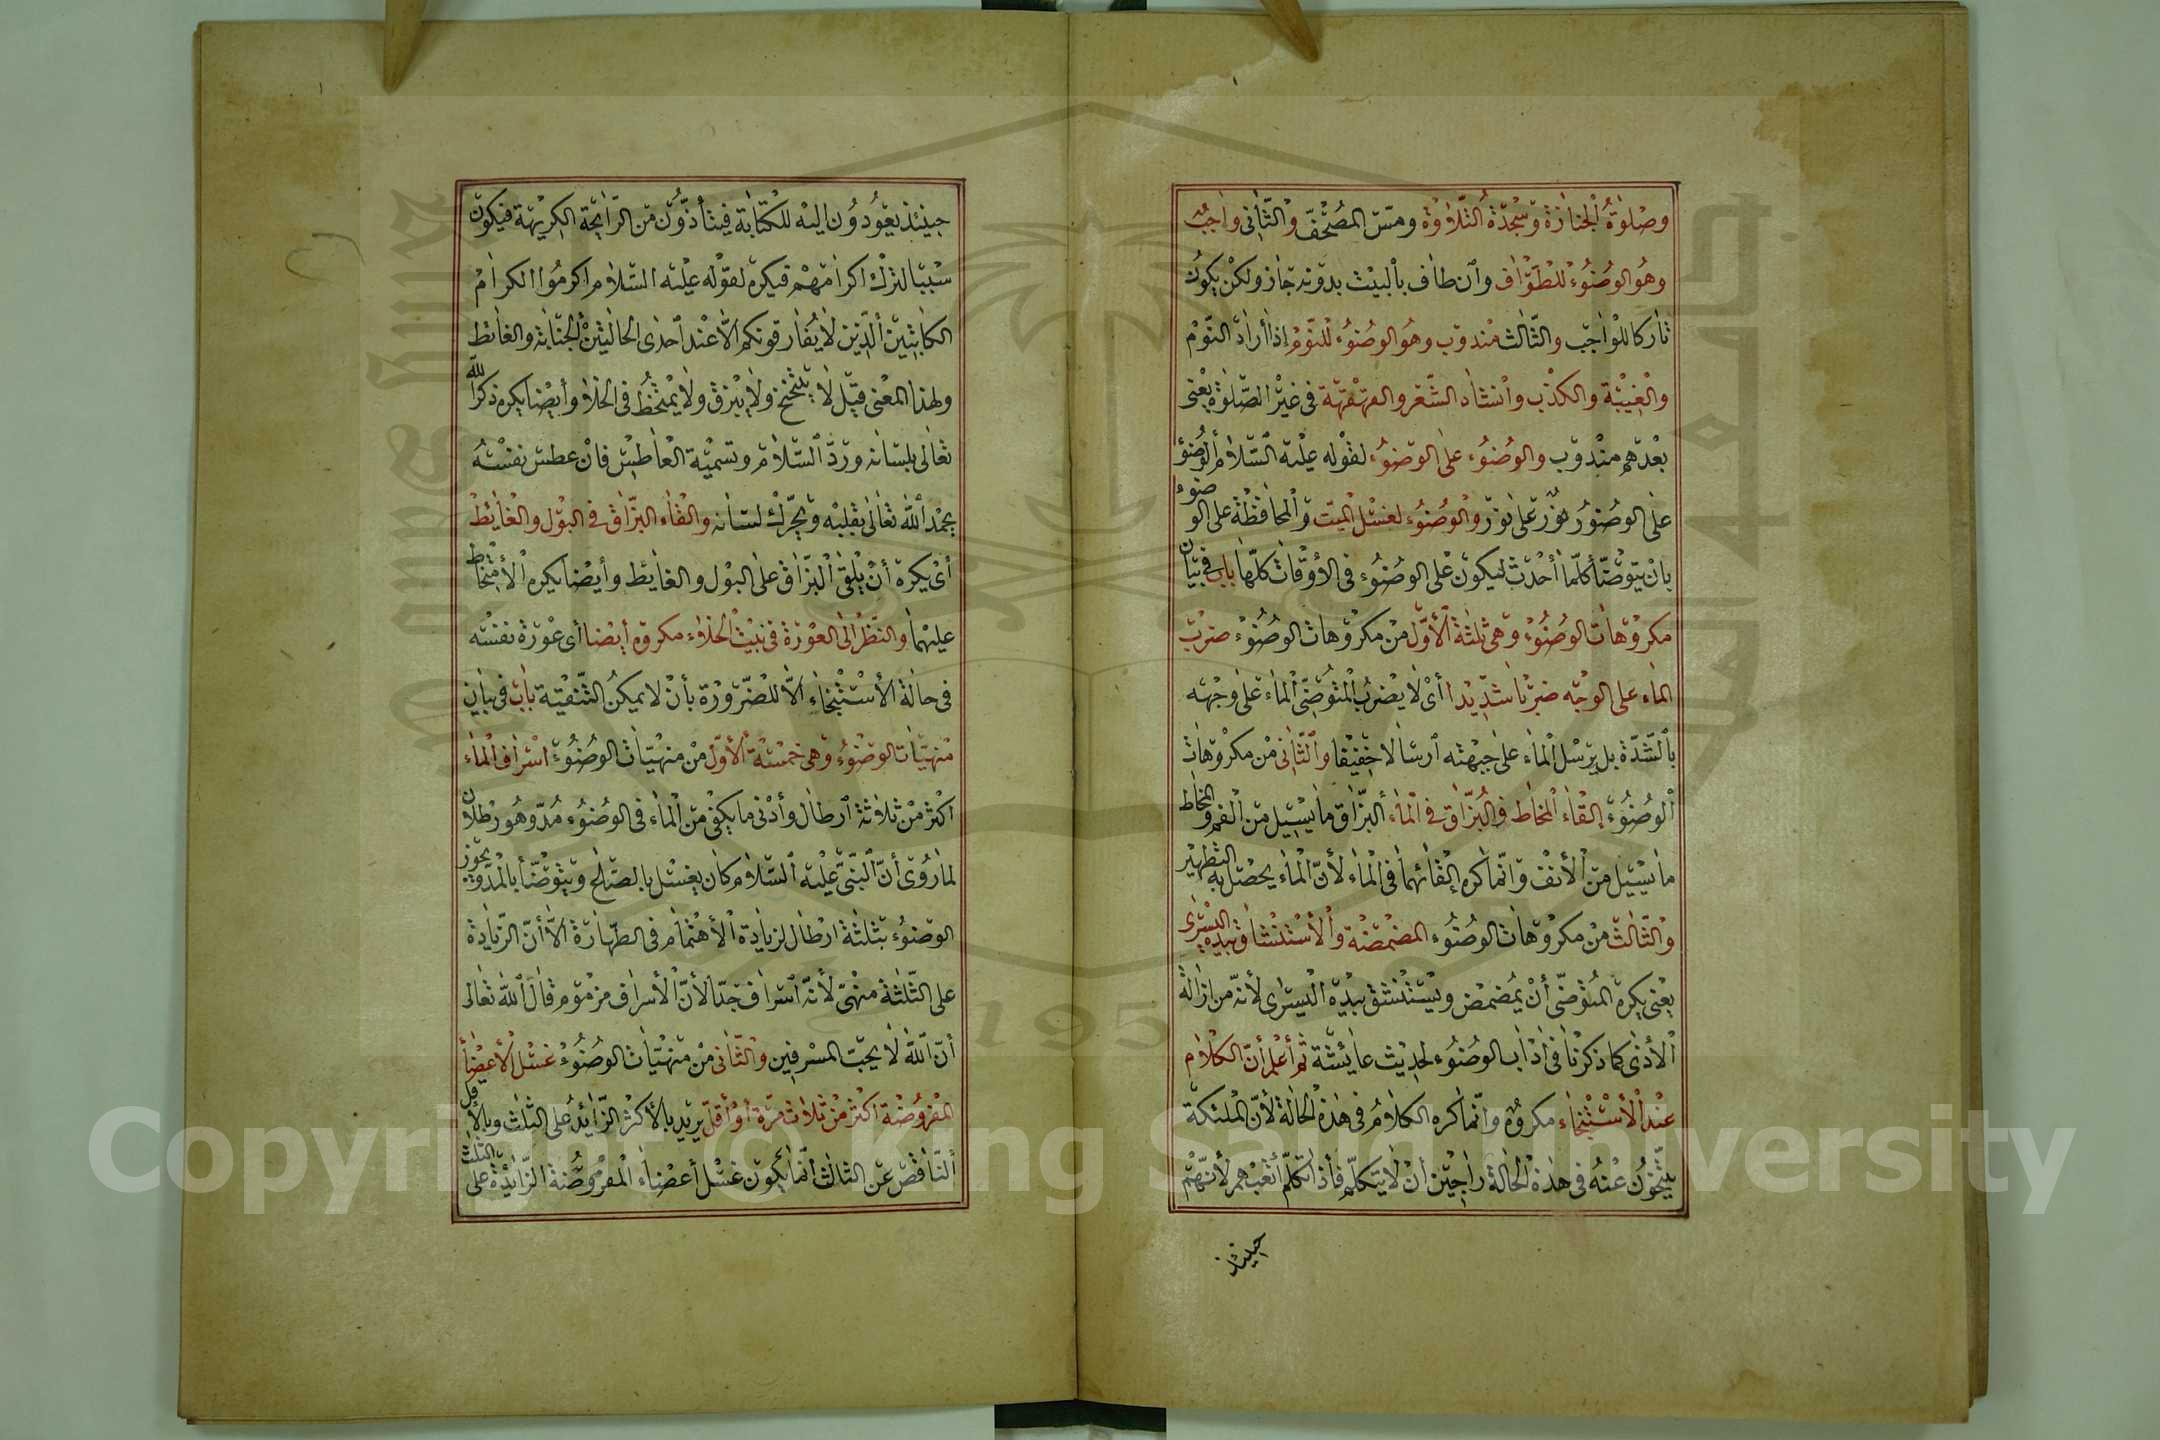 وصلوة الجنازة وسجدة التلاوة ومس المصحف والثاني واجب
وهو الوضوء للطواف وان طاف بالبيت بدونه جاز ولكن يكون
تاركا للواجب والثالث مندوب وهو الوضوء للنوم إذا أراد النوم
والغيبة والكذب وانشاد الشعر والقهقهة في غير الصلوة يعنى
بعدهم مندوب والوضوء على الوضوء لقوله عليه السلام ألوضوء
على الوضوء نور على نور والوضوء لغسل الميت والمحافظة على الوضوء
بان يتوضأ كلما أحدث ليكون على الوضوء في الأوقات كلها باب في بيان
مكروهات الوضوء وهي ثلثة الأول من مكروهات الوضوء ضرب
الماء على الوجه ضربا شديدا أي لا يضرب المتوضى الماء على وجهه
بالشدة بل يرسل الماء على جبهته ارسالا خفيفا والثاني من مكروهات
ألوضوء إلقاء المخاط والبزاق في الماء ألبزاق ما يسيل من الفم والمخاط
ما يسيل من الأنف وانما كره إلقائهما في الماء لأن الماء يحصل به التطهير
والثالث من مكروهات الوضوء المضمضة والأستنشاق بيده اليسرى
يعنى يكره المتوضى أن يمضمض ويستنشق بيده اليسرى لأنه من ازالة
الأذى كما ذكرنا في اداب الوضوء لحديث عايشة ثم أعلم أن الكلام
عند الأستنجاء مكروه وانما كره الكلام في هذه الحالة لأن الملئكة
يتنحون عنه في هذه الحالة راجين أن لا يتكلم فأذا تكلم أتعبهم لأنهم
حينئذ
حينئذ يعودون اليه للكتابة فيتأذون من الرايحة الكريهة فيكون
سببا لترك اكرامهم فيكره لقوله عليه السلام اكرموا الكرام
الكاتبين ألذين لا يفارقونكم الا عند أحدى الحالتين ألجنابة والغائط
ولهذا المعنى قيل لا يتنحنح ولا يبزق ولا يمتخط في الخلا وأيضا يكره ذكر الله
تعالى بلسانه ورد السلام وتسمية العاطس فان عطس نفسه
يحمد ألله تعالى بقلبه ويحرك لسانه والقاء البزاق في البول والغايط
أى يكره أن يلقى البزاق على البول والغايط وأيضا يكره الأمتخاط
عليهما والنظر الى العورة في بيت الخلاء مكروه أيضا أي عورة نفسه
في حالة الأستنجاء الا للضرورة بأن لا يمكن التنقية باب في بيان
منهيات الوضوء وهي خمسة الأول من منهيات الوضوء اسراف الماء
اكثر من ثلاثة ارطال وأدنى ما يكفى من الماء في الوضوء مد وهو رطلان
لما روى أن النبى عليه السلام كان يغسل بالصاع ويتوضأ بالمد ويجوز
الوضوء بثلثة ارطال لزيادة الأهتمام في الطهارة الا أن الزيادة
على الثلثة منهى لأنه اسراف جدا لأن الأسراف مزموم قال ألله تعالى
أن الله لا يحب المسرفين والثانى من منهيات الوضوء غسل الأعضأ
المفروضة اكثر من ثلاث مرة أو أقل يريد بالأكثر الزايد على الثلث وبالأقل
ألناقص عن الثلاث أنما يكون غسل أعضاء المفروضة الزايدة على الثلث